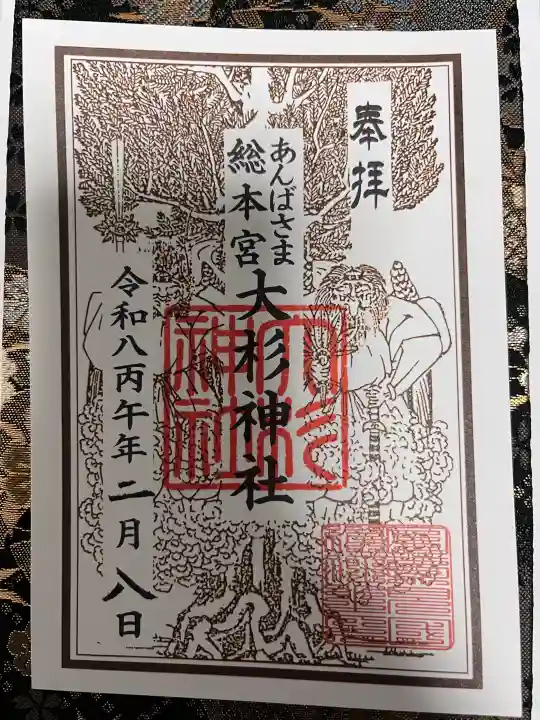 奉拝
あんばさま
総本宮
大杉神社
大杉神社
令和八丙午年二月八日